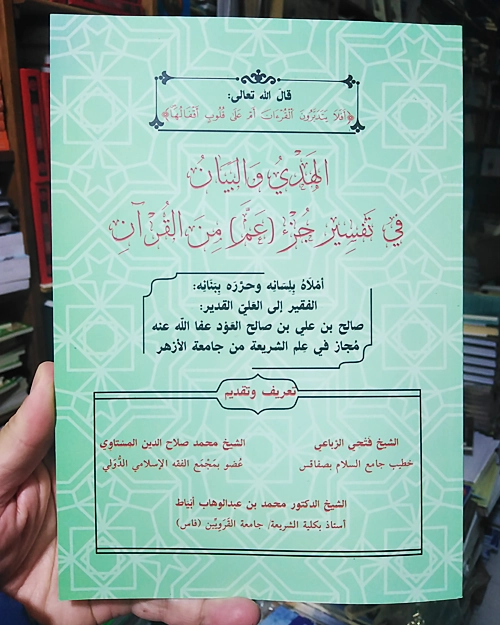 قال الله تعالى:
﴿أَفَلَا يَتَدَبَّرُونَ ٱلْقُرْءَانَ أَمْ عَلَىٰ قُلُوبٍ أَقْفَالُهَآ﴾
الهَدْيُ وَالبَيَانُ
فِي تَفْسِيرِ جُزْءِ (عَمَّ) مِنَ القُرْآنِ
أملاهُ بِلِسَانِه وحرّرَه بِبَنَانِه:
الفقير إلى العَليّ القدير:
صالح بن علي بن صالح العَوْد عفا الله عنه
مُجاز في عِلم الشريعة من جامعة الأزهر
تعريف وتقديم
الشيخ فتْحي الرْباعي
خطيب جامع السلام بصفاقس
الشيخ محمد صلاح الدين المسْتاوي
عُضو بمَجْمَع الفقه الإسلامي الدُّوَلي
الشيخ الدكتور محمد بن عبدالوهاب أبياط
أستاذ بكلية الشريعة/ جامعة القَرَوِيِّين (فاس)